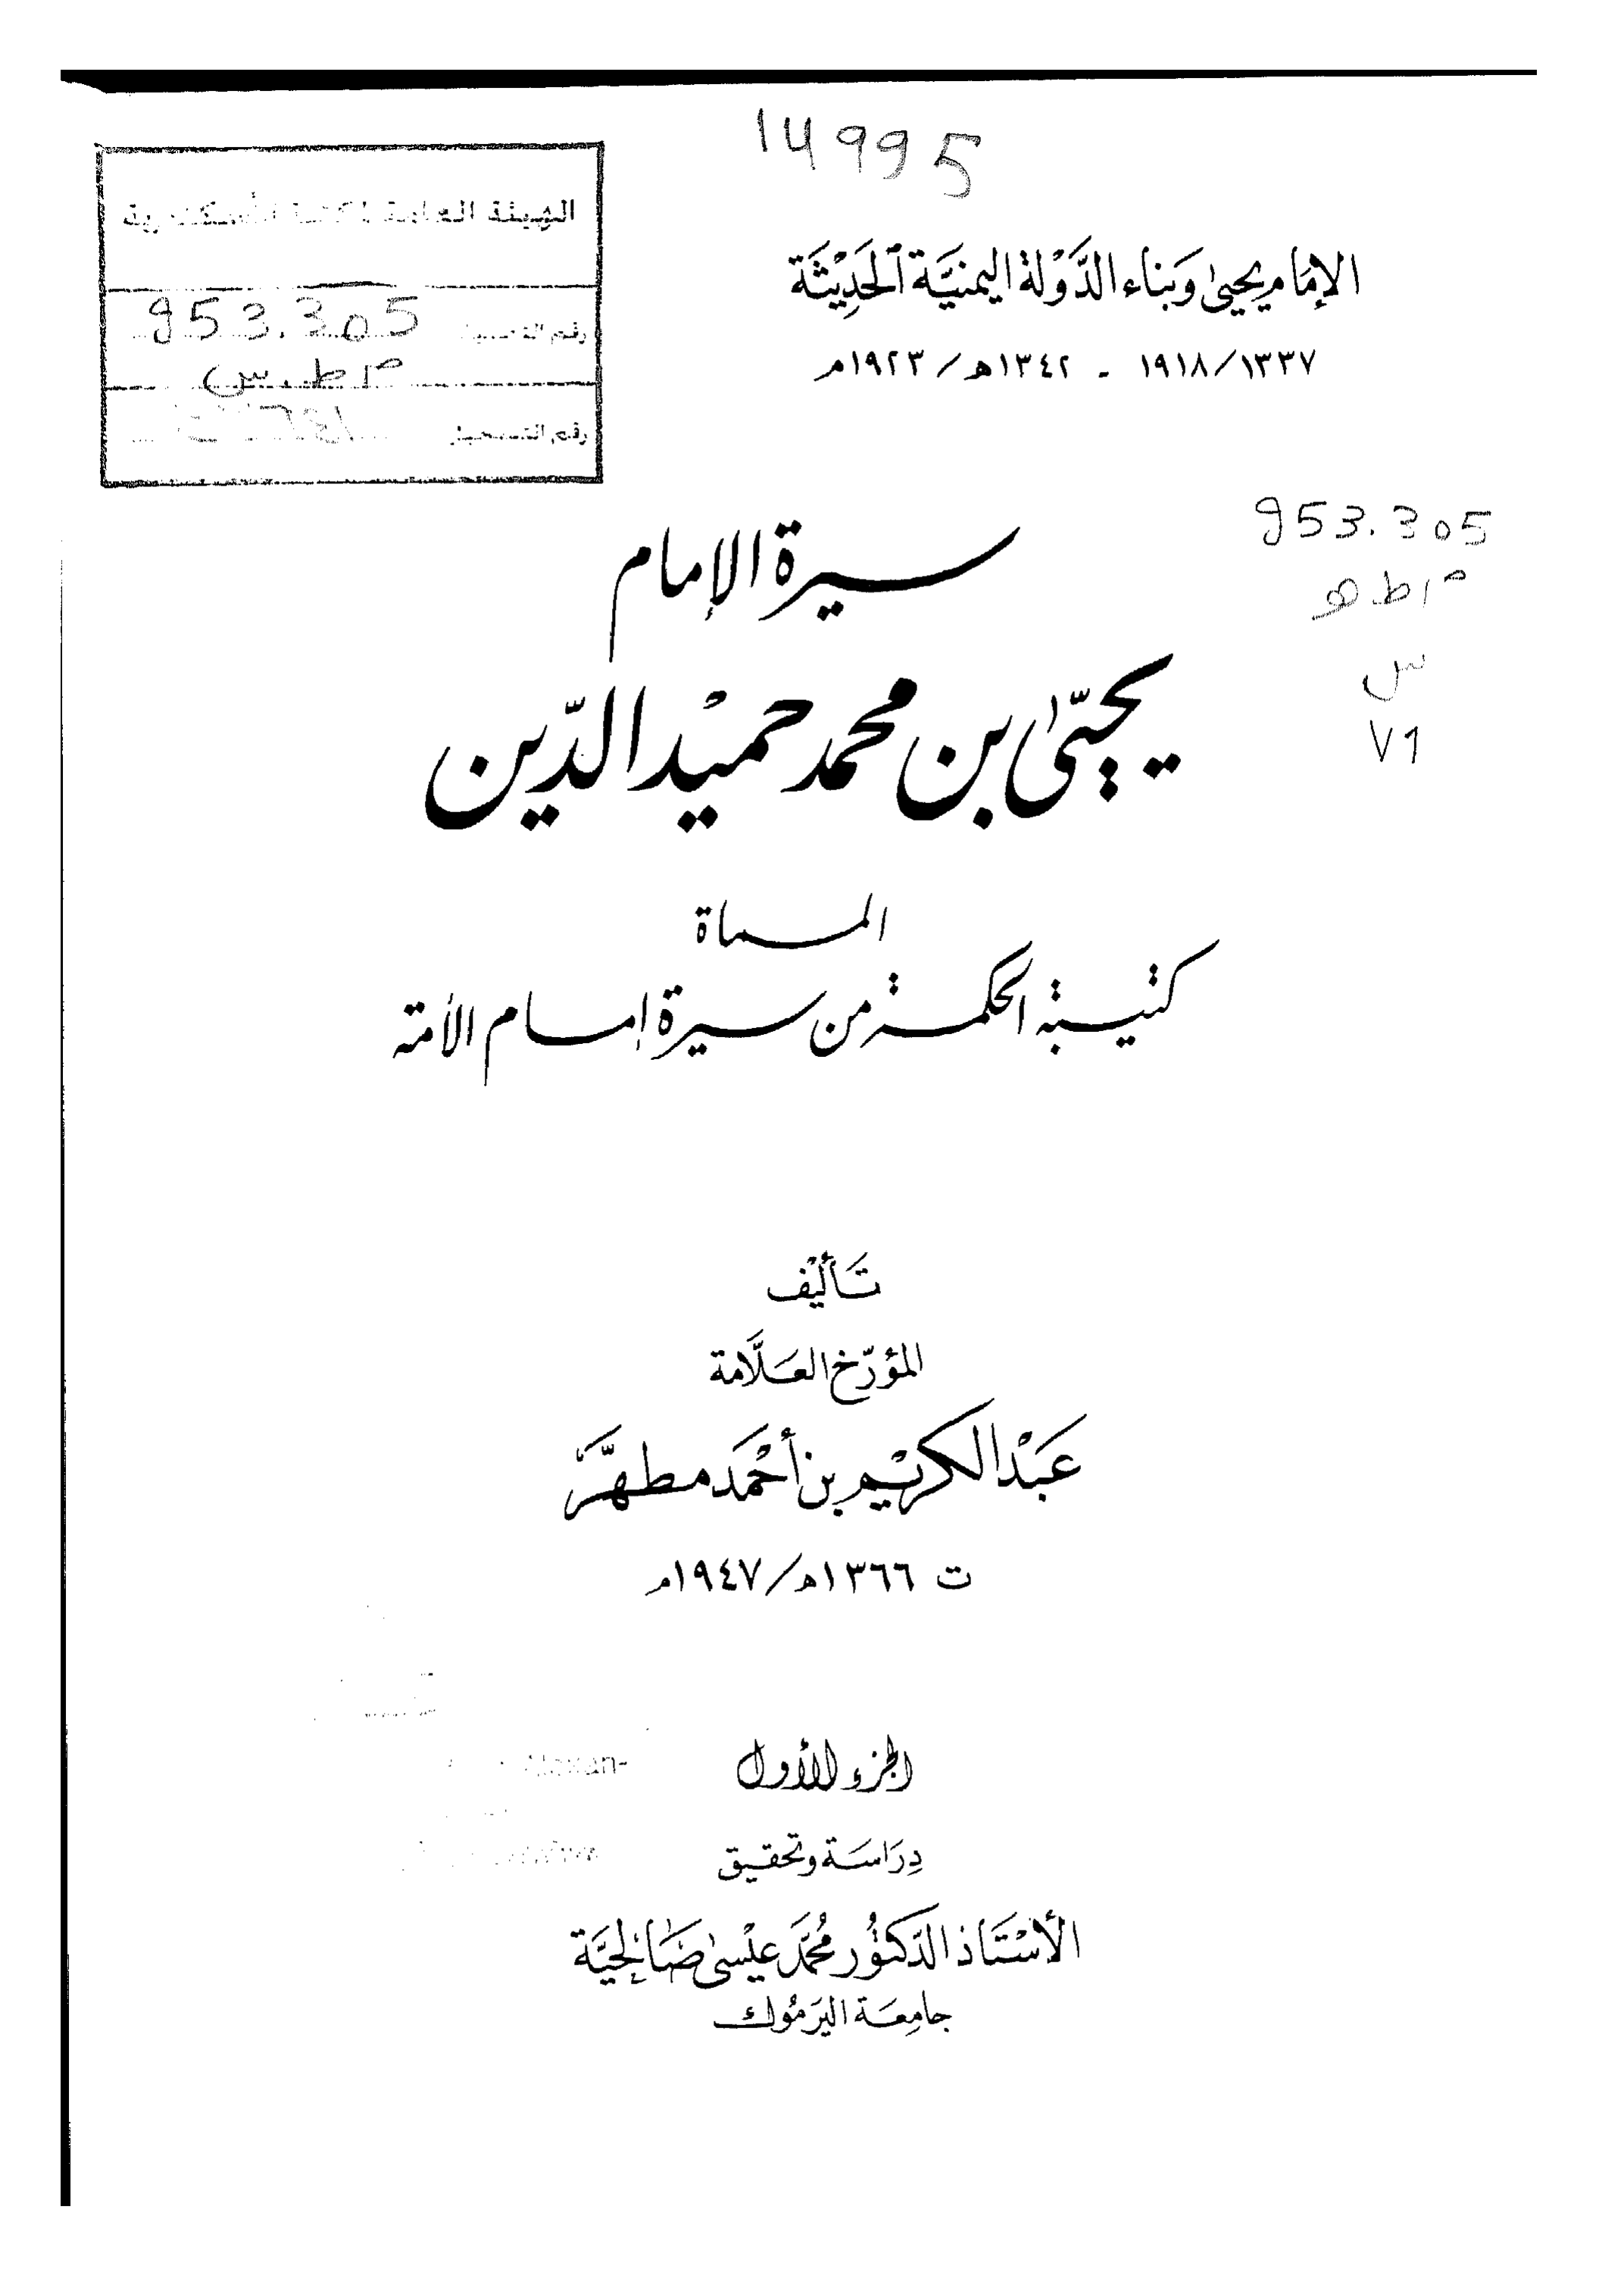 14995
الهيئة العامة لمكتبة الأسكندرية
953.305
رقم
م ط. س
رقم التسجيل
الإمَام يحيىٰ وَبناء الدَّوْلة اليمنيَّة ٱلحَدِيْثَة
١٣٣٧/١٩١٨ - ١٣٤٢هـ/١٩٢٣م
953.305
م ط هـ
س
V1
سيرة الإمام
يحيّىٰ بن محمد حميْد الدّين
المسماة
كتيبة الحكمة من سيرة إمام الأمة
تَأليْف
المؤرّخ العَلَّامة
عَبْد الكريْم بن أحْمَد مطهَّر
ت ١٣٦٦هـ/١٩٤٧م
الجزء الأول
دِرَاسَة وتحقيق
الأسْتَاذ الدَّكتُور مُحمَّد عيْسىٰ صَالحيَّة
جامِعَة اليَرمُوك